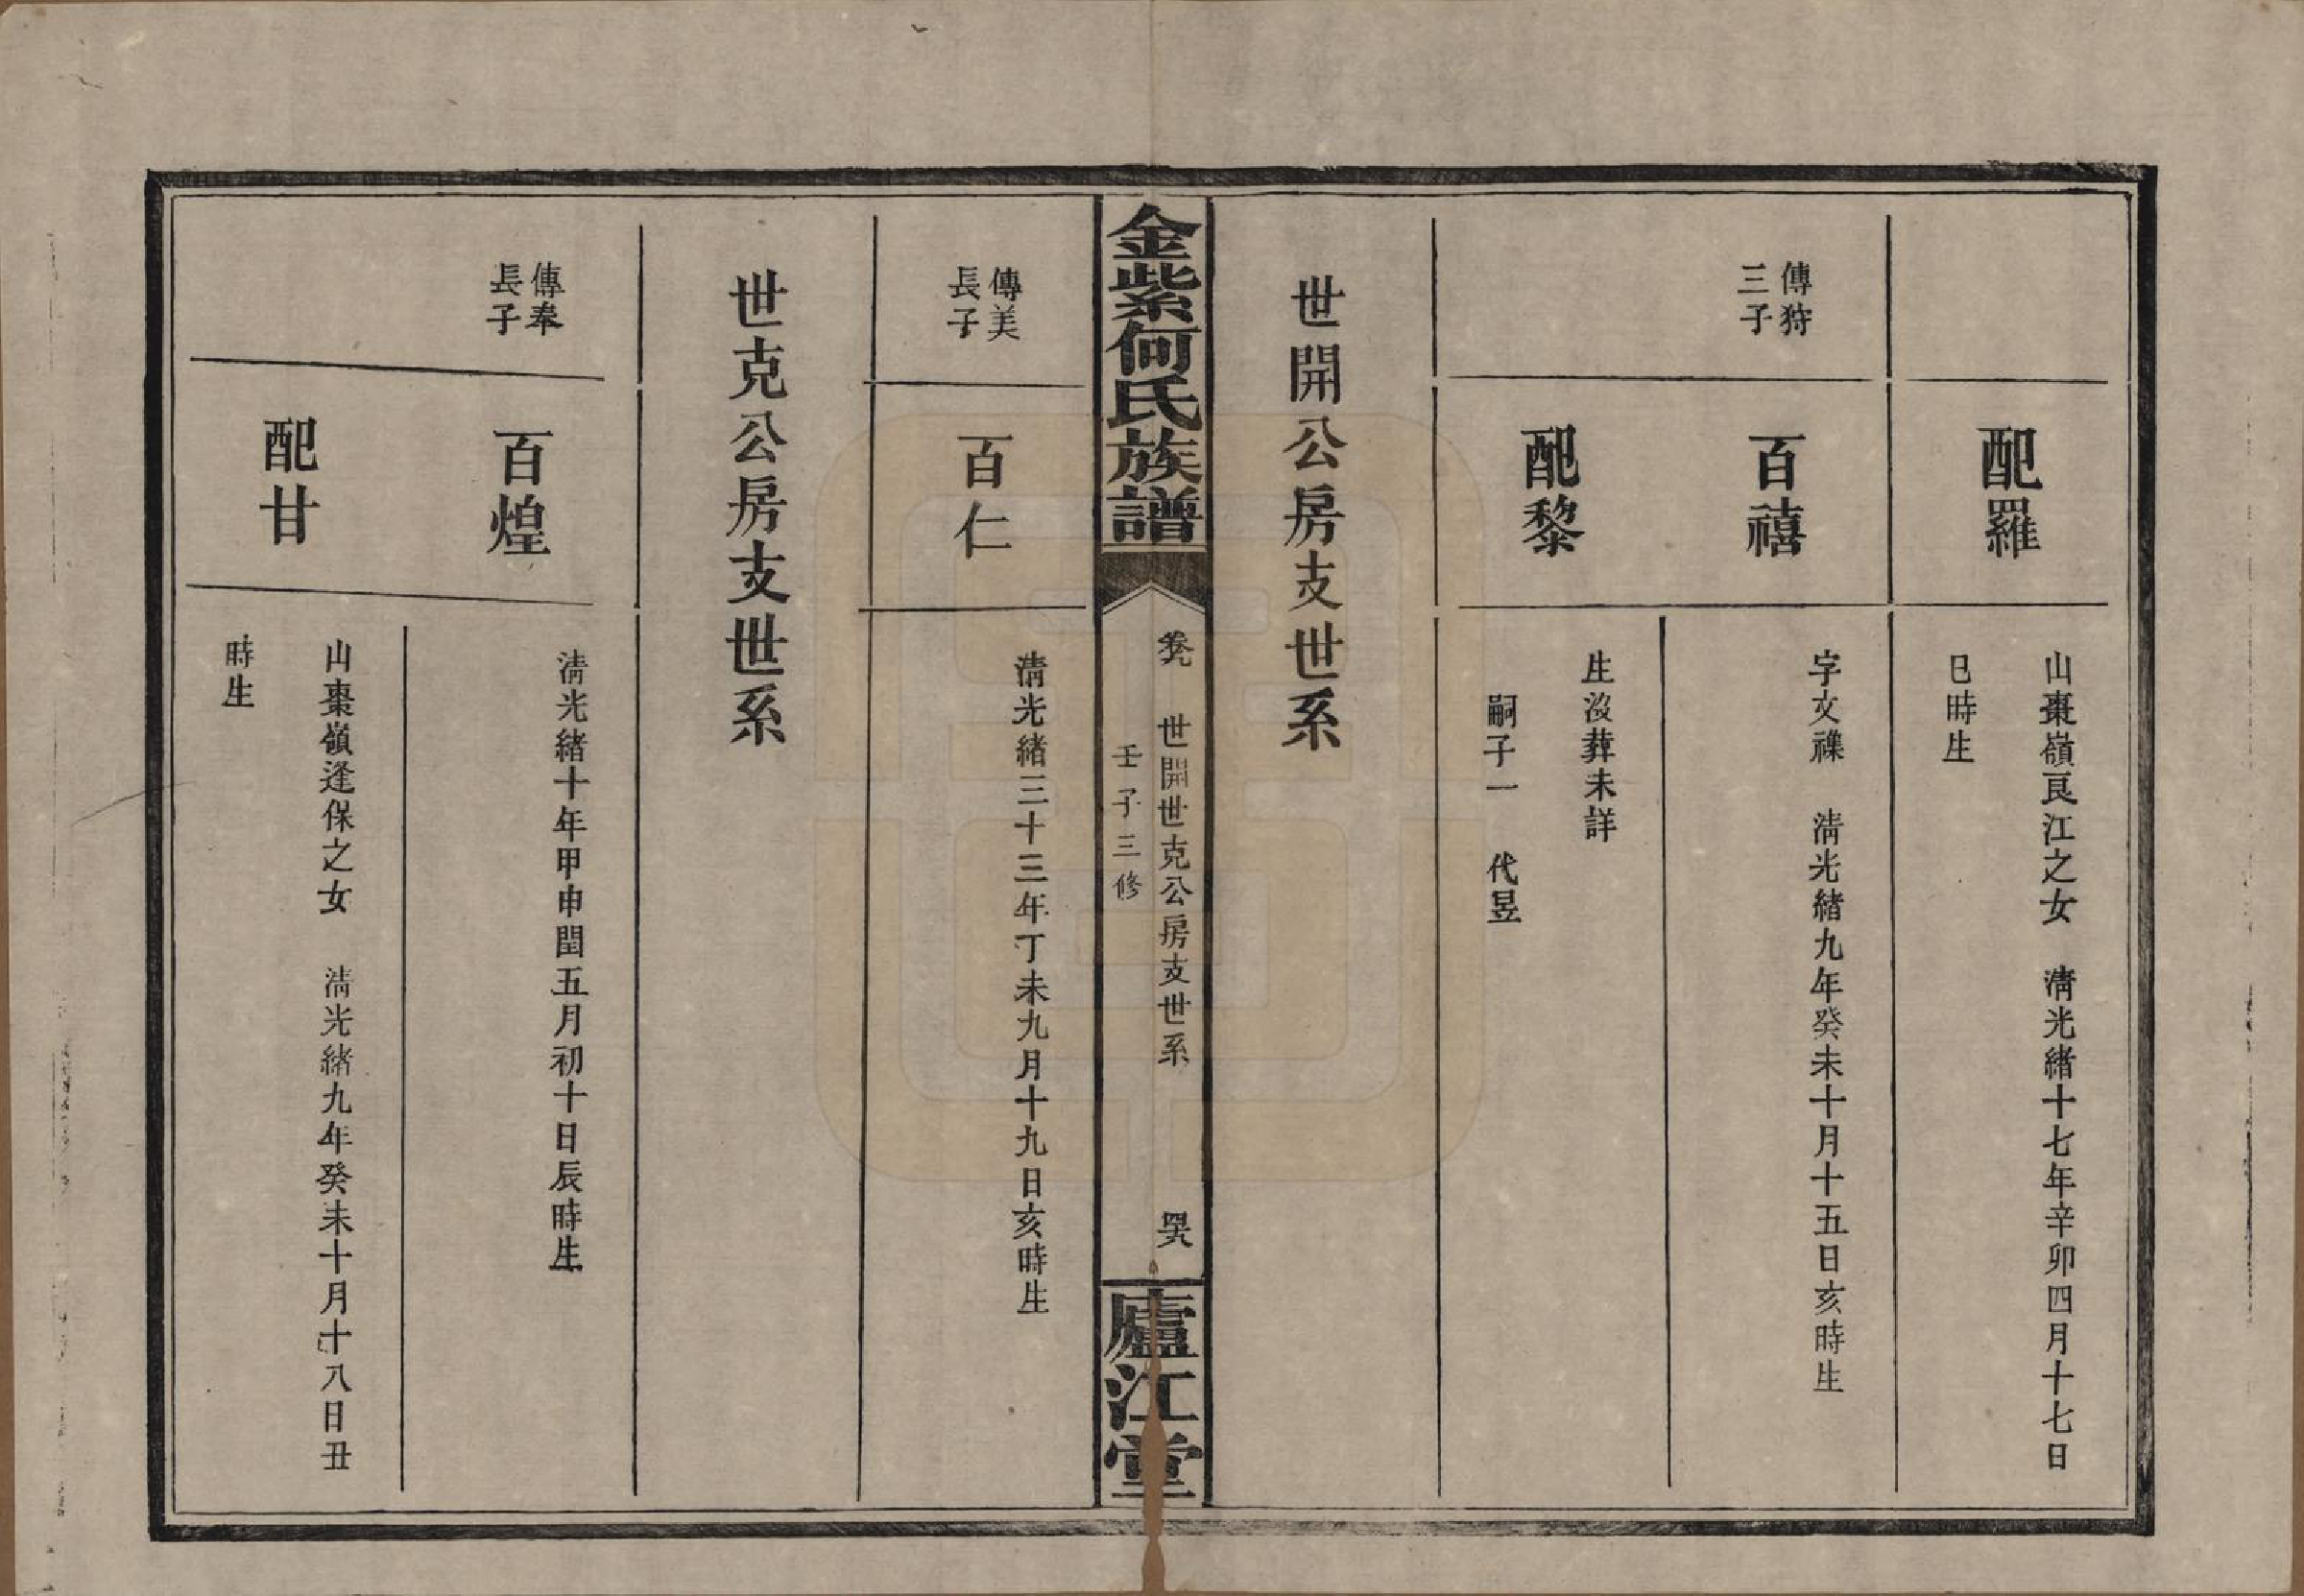 配羅
山棗嶺良江之女　清光緒十七年辛卯四月十七日
巳時生
傳狩
三子
百禧
字文禩　清光緒九年癸未十月十五日亥時生
配黎
生沒葬未詳
嗣子一　代昱
世開公房支世系
金紫何氏族譜
卷九　世開世克公房支世系
壬子三修
廬江堂
傳美
長子
百仁
清光緒三十三年丁未九月十九日亥時生
世克公房支世系
傳奉
長子
百煌
清光緒十年甲申閏五月初十日辰時生
配甘
山棗嶺逢保之女　清光緒九年癸未十月十八日丑
時生